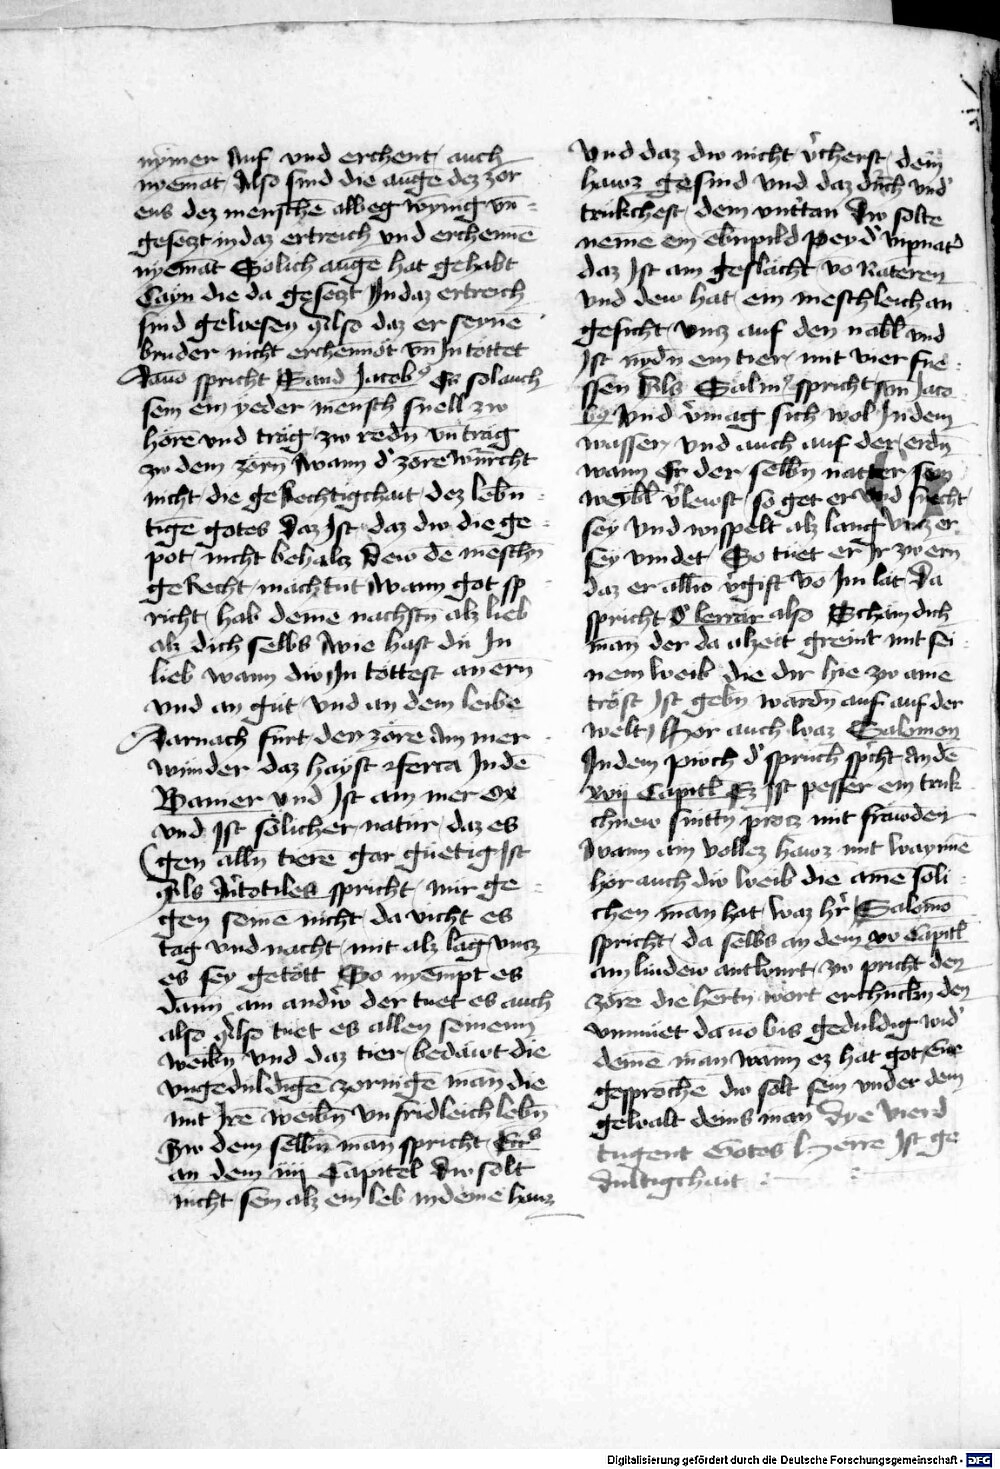 nymer Auf vnd erchent auch
nyemāt Also sind die auge dez zor
ens dez menschē albeg wynig vn̄
gesetzt in daz ertreich vnd erchennē
nyemāt Solich auge hat gehabt
Cayn die da gesetzt In daz ertreich
sind gebesen Also daz er seynē
bruder nicht erchennōt vn̄ In tottet
Dauō spricht Sand Jacobꝯ Er sol auch
sein ein yeder mensch snell zw
hōrē vnd träg zw redn̄ vn̄ träg
zw dem zorn̄ Wann dʼ zorē würcht
nicht die gerechtigchait dez lebn̄
tigē gotes Daz Ist daz dw die ge
pot nicht behalcz dew dē meschn̄
gerecht machtnt Wann got sp
richt hab deinē nachstn̄ alz lieb
alz dich selbs Wie hast dū In
lieb wann dw In tottest an ern̄
vnd an gūt vnd an dem leibe
Darnach furt der zorē Am mer
wunder daz hayst Aserra In dē
Wamer vnd Ist am mer ox
vnd Ist solicher natur daz es
gen alln̄ tierē gar guetig Ist
Als Ar̄totiles spricht nur ge
gen seine nicht da vicht es
tag vnd nacht mit alz lāg vncz
es sey getött So nympt es
dann am andrʼ der tuet es auch
also Also tuet es allen seinenn
weibn̄ vnd daz tier bedäwt die
vngeduldigē zornigē man die
mit Irē weibn̄ vn fridleich lebn̄
Zw dem selbn̄ man spricht Eccs
an dem iiii Capitel Dw solt
nicht sein alz ein leb in deinē hawz
Vnd daz dw nicht vʼcherst dein̄
hawz gesind vnd daz drūch vndʼ
trukchest dem vntʼtan Dw solte
nemē ein ebnpild pey dʼ vipnatʼ
daz Ist am geslācht vō Naterē
vnd dew hat ein meschleich an
gesicht vncz auf den nabl vnd
Ist nydn̄ ein tier mit vier fue
ssen Als Salinꝰ spricht vn̄ Jaco
bꝯ Vnd vʼmag sich wol In dem
wasser vnd auch auf der erdn̄
wann Er der selbn̄ natter sein
weybl vʼlewst so get er vnd suecht
sey vnd wispelt alz lang vncz er
sey vindet So tuet er Ir zw ern
daz er allw vʼgift vō Im lat Da
spricht dʼ lerrar also Scham dich
man der da alzeit greint mit sei
nem weib die dir hie zw ainē
tröst Ist gebn̄ wordn̄ auf auf der
welt Hor auch waz Salomon
In dem puech dʼ sprūch spʼcht An dē
xvii Capitl Ez Ist pesser ein truk
chnew snittn̄ procz mit frawden
Wann ain vollez hawz mit waynnē
hor auch dw weib die ainē soli
chen man hat waz hʼr Salomō
spricht da selbs an dem xv Capitl
am lindew antwurt zw pricht den
zorē die hertn̄ wort erchuckn̄ den
vnmuet dauō bis geduldig widʼ
deinē man wann ez hat got Eve
gesprochē dw solt sein vnder dem
gebalt deins man Dye vierd
tugent Gotes Herre Ist ge
dultigchait
Digitalisierung gefördert durch die Deutsche Forschungsgemeinschaft - DFG